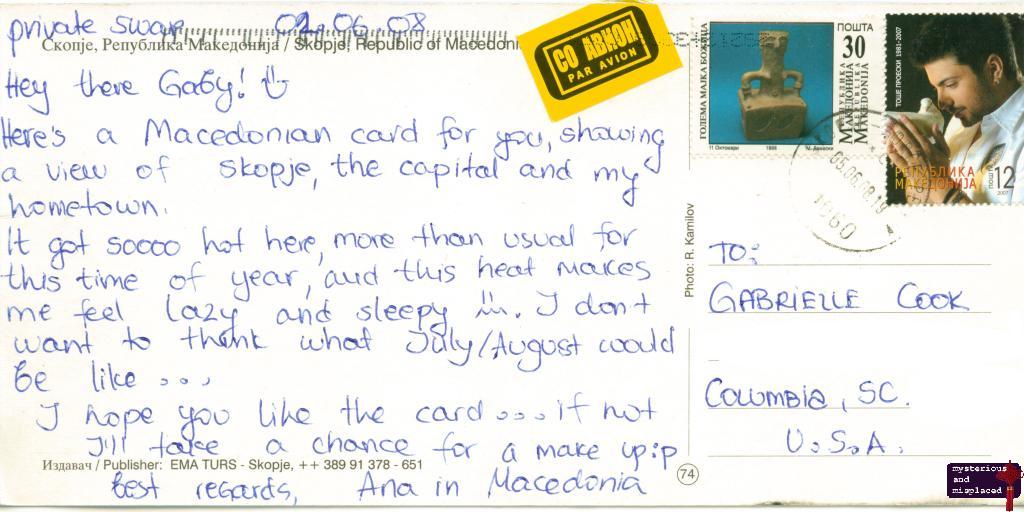 private swap 02.06.08
Скопје, Република Македонија / Skopje, Republic of Macedoni
Hey there Gaby!
Here's a Macedonian card for you, showing
a view of Skopje, the capital and my
hometown.
It got soooo hot here, more than usual for
this time of year, and this heat makes
me feel lazy and sleepy. I don't
want to think what July/August would
be like ...
I hope you like the card ... if not
I'll take a chance for a make up :p
Издавач / Publisher: EMA TURS - Skopje, ++ 389 91 378 - 651
Best regards, Ana in Macedonia
СО АВИОН
PAR AVION
ГОЛЕМА МАЈКА БОЖИЦА
ПОШТА
30
РЕПУБЛИКА
МАКЕДОНИЈА
REPUBLIKA
MAKEDONIJA
11 Октомври 1998
ТОШЕ ПРОЕСКИ 1981-2007
РЕПУБЛИКА
МАКЕДОНИЈА
ПОШТА
12
2007
05.06.08.19
1060
Photo: R. Kamilov
TO:
GABRIELLE COOK
COLUMBIA, SC.
U.S.A.
74
mysterious
and
misplaced